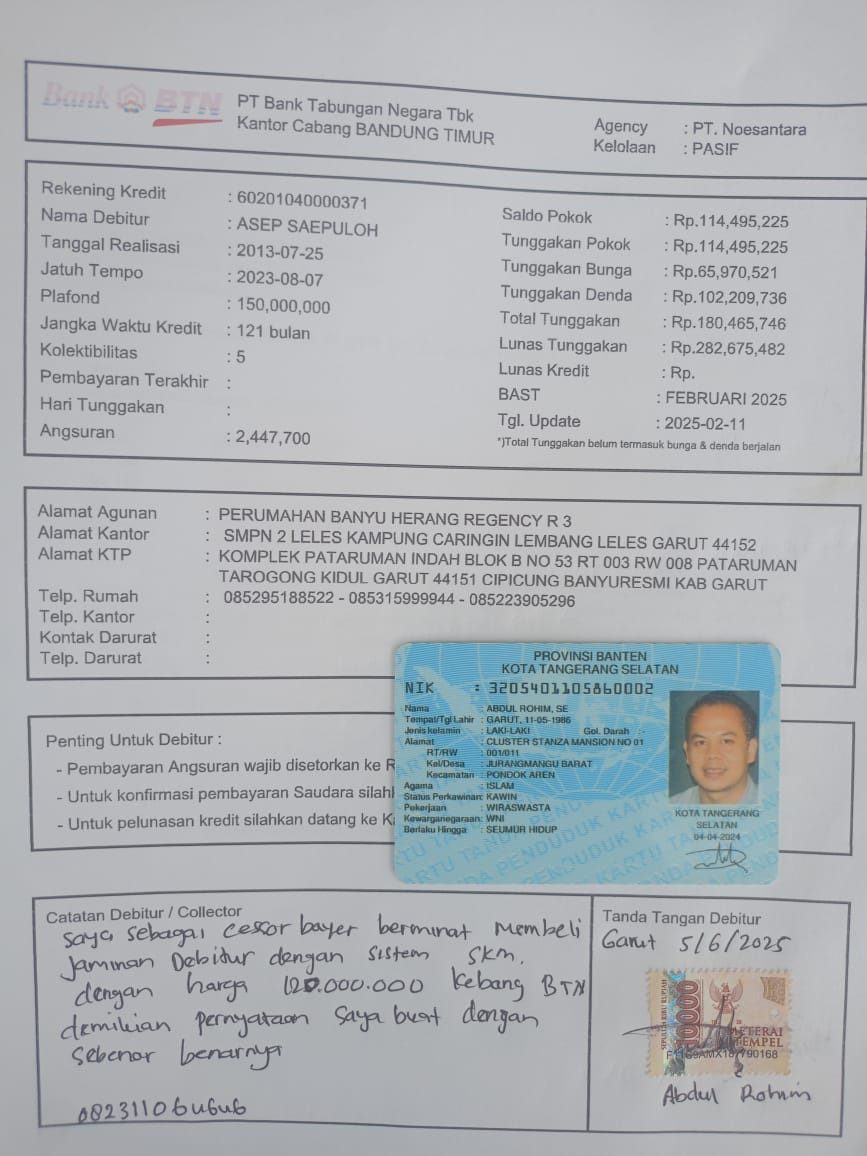 Bank BTN
PT Bank Tabungan Negara Tbk
Kantor Cabang BANDUNG TIMUR
Agency : PT. Noesantara
Kelolaan : PASIF
Rekening Kredit : 60201040000371
Nama Debitur : ASEP SAEPULOH
Tanggal Realisasi : 2013-07-25
Jatuh Tempo : 2023-08-07
Plafond : 150,000,000
Jangka Waktu Kredit : 121 bulan
Kolektibilitas : 5
Pembayaran Terakhir :
Hari Tunggakan :
Angsuran : 2,447,700
Saldo Pokok : Rp.114,495,225
Tunggakan Pokok : Rp.114,495,225
Tunggakan Bunga : Rp.65,970,521
Tunggakan Denda : Rp.102,209,736
Total Tunggakan : Rp.180,465,746
Lunas Tunggakan : Rp.282,675,482
Lunas Kredit : Rp.
BAST : FEBRUARI 2025
Tgl. Update : 2025-02-11
*)Total Tunggakan belum termasuk bunga & denda berjalan
Alamat Agunan : PERUMAHAN BANYU HERANG REGENCY R 3
Alamat Kantor : SMPN 2 LELES KAMPUNG CARINGIN LEMBANG LELES GARUT 44152
Alamat KTP : KOMPLEK PATARUMAN INDAH BLOK B NO 53 RT 003 RW 008 PATARUMAN
TAROGONG KIDUL GARUT 44151 CIPICUNG BANYURESMI KAB GARUT
Telp. Rumah : 085295188522 - 085315999944 - 085223905296
Telp. Kantor :
Kontak Darurat :
Telp. Darurat :
PROVINSI BANTEN
KOTA TANGERANG SELATAN
NIK : 3205401105860002
Nama : ABDUL ROHIM, SE
Tempat/Tgl Lahir : GARUT, 11-05-1986
Jenis kelamin : LAKI-LAKI Gol. Darah :-
Alamat : CLUSTER STANZA MANSION NO 01
RT/RW : 001/011
Kel/Desa : JURANGMANGU BARAT
Kecamatan : PONDOK AREN
Agama : ISLAM
Status Perkawinan: KAWIN
Pekerjaan : WIRASWASTA
Kewarganegaraan: WNI
Berlaku Hingga : SEUMUR HIDUP
KOTA TANGERANG
SELATAN
04-04-2024
Penting Untuk Debitur :
- Pembayaran Angsuran wajib disetorkan ke R
- Untuk konfirmasi pembayaran Saudara silah
- Untuk pelunasan kredit silahkan datang ke Ka
Catatan Debitur / Collector
Saya sebagai cessor bayer berminat membeli
Jaminan Debitur dengan Sistem SKM.
dengan harga 120.000.000 Kebang BTN
demikian pernyataan Saya buat dengan
sebenar benarnya
082311060606
Tanda Tangan Debitur
Garut 5/6/2025
SEPULUH RIBU RUPIAH
10000
METERAI
TEMPEL
Abdul Rohim